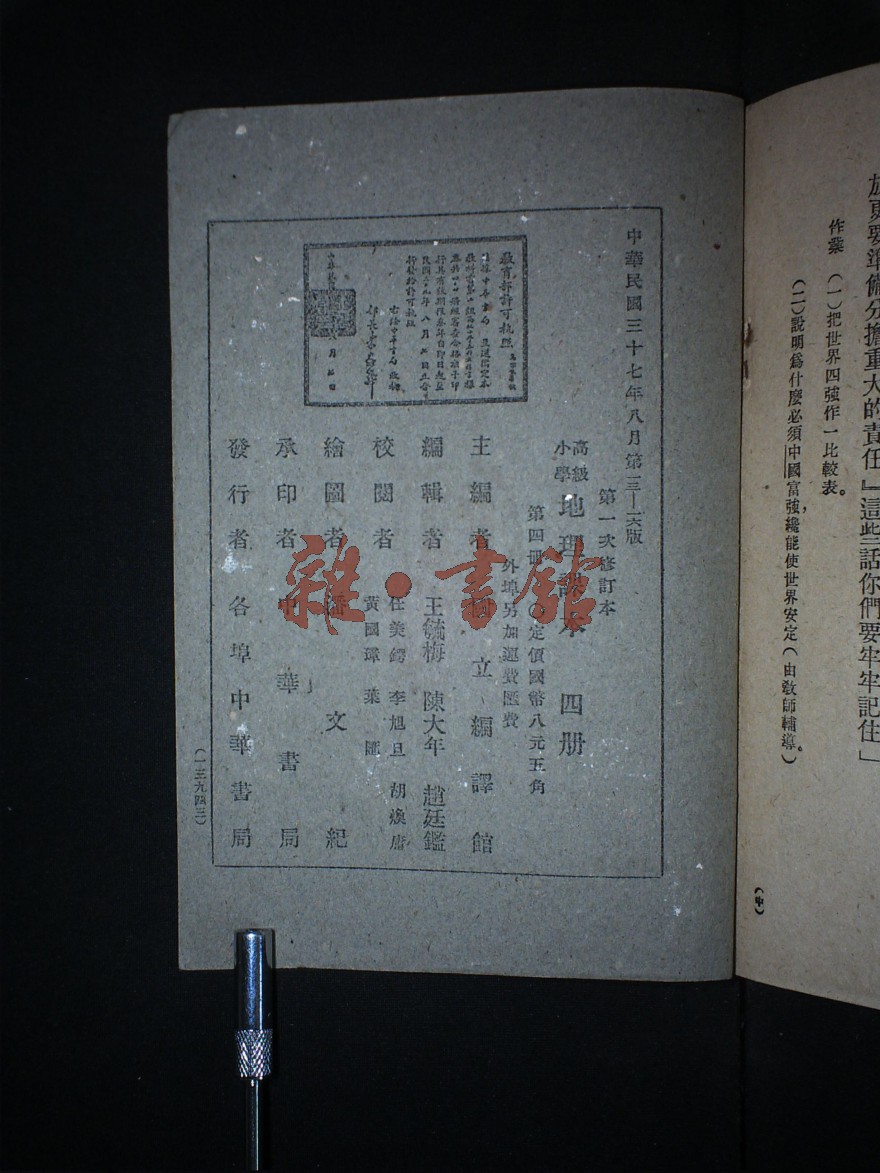 旅更要準備分擔重大的責任』這些話你們要牢牢記住」
作業 (一)把世界四強作一比較表。
(二)說明爲什麼必須中國富強,纔能使世界安定(由敎師輔導。)
(中)
中華民國三十七年八月第三十六版
第一次修訂本
高級小學 地理課本 四册
第四册 定價國幣八元五角
外埠另加運費匯費
主編者 國立編譯館
編輯者 王毓梅 陳大年 趙廷鑑
校閱者 任美鍔 李旭旦 胡煥庸
黃國璋 葉匯
繪圖者 潘文紀
承印者 中華書局
發行者 各埠中華書局
(一三九四三)
敎育部許可執照
雜·書館